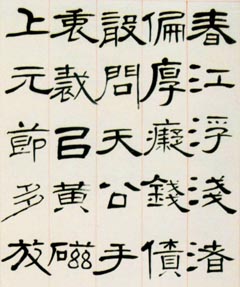 春江浮淺渚
偏厚癡錢債
設問天公手
衷裁黄磁
上元節多放